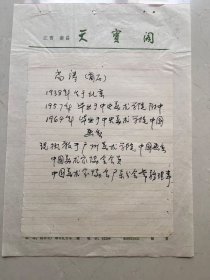 江西 南昌 天宝阁
高涛（商石）
1938年生于北京
1957年 毕业于中央美术学院附中
1964年 毕业于中央美术学院中国
画系
现执教于广州美术学院中国画系
中国美术家协会会员
中国美术家协会广东分会常务理事